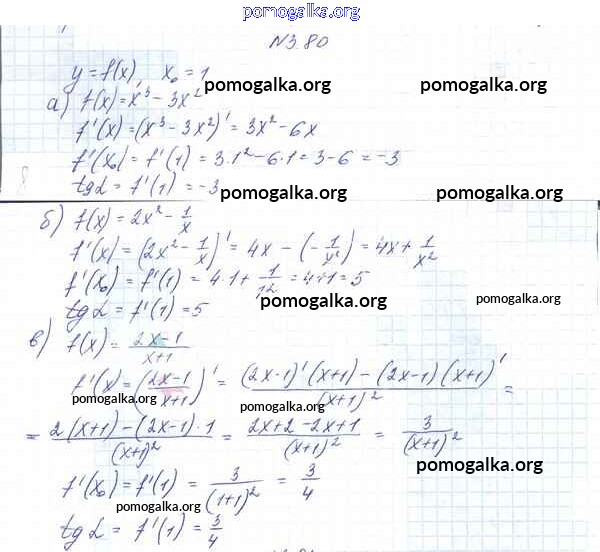 pomogalka.org
N3.80
y = f(x), x₀ = 1 pomogalka.org
а) f(x) = x³ - 3x² pomogalka.org
f'(x) = (x³ - 3x²)' = 3x² - 6x
f'(x₀) = f'(1) = 3·1² - 6·1 = 3 - 6 = -3
tg α = f'(1) = -3 pomogalka.org pomogalka.org
б) f(x) = 2x² - 1/x
f'(x) = (2x² - 1/x)' = 4x - (-1/x²) = 4x + 1/x²
f'(x₀) = f'(1) = 4·1 + 1/1² = 4+1 = 5
tg α = f'(1) = 5 pomogalka.org pomogalka.org
в) f(x) = (2x-1)/(x+1)
f'(x) = ((2x-1)/(x+1))' = ((2x-1)'(x+1) - (2x-1)(x+1)')/(x+1)² =
pomogalka.org pomogalka.org
= (2(x+1) - (2x-1)·1)/(x+1)² = (2x+2-2x+1)/(x+1)² = 3/(x+1)²
pomogalka.org
f'(x₀) = f'(1) = 3/(1+1)² = 3/4
pomogalka.org
tg α = f'(1) = 3/4